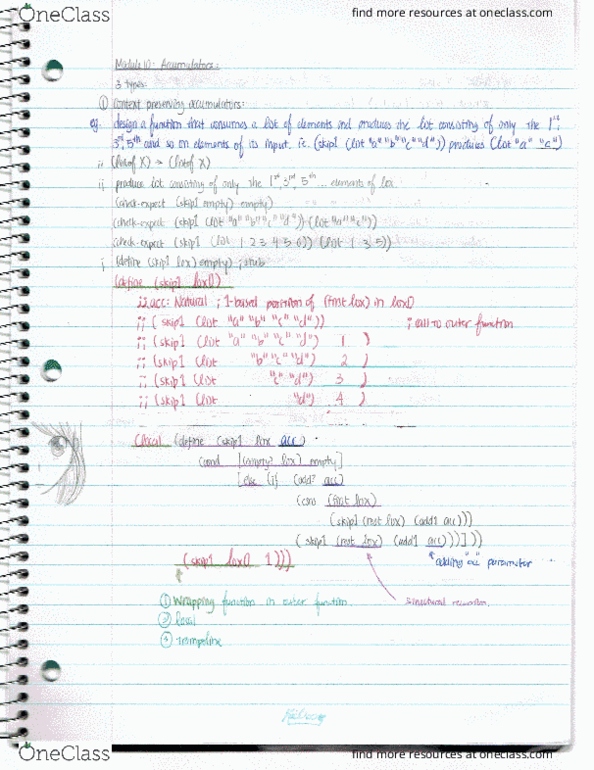 OneClass
find more resources at oneclass.com
Module 10: Accumulators:
3 types:
① Context preserving accumulators:
eg. design a function that consumes a list of elements and produces the list consisting of only the 1st,
3rd, 5th and so on elements of its input. i.e. (skip1 (list "a" "b" "c" "d")) produces (list "a" "c")
;; (listof X) → (listof X)
;; produce list consisting of only the 1st, 3rd, 5th ... elements of lox
(check-expect (skip1 empty) empty)
(check-expect (skip1 (list "a" "b" "c" "d")) (list "a" "c"))
(check-expect (skip1 (list 1 2 3 4 5 6)) (list 1 3 5))
; (define (skip1 lox) empty) ; stub
(define (skip1 lox0)
;; acc: Natural ; 1-based position of (first lox) in lox0
;; (skip1 (list "a" "b" "c" "d")) ; call to outer function
;; (skip1 (list "a" "b" "c" "d") 1 )
;; (skip1 (list "b" "c" "d") 2 )
;; (skip1 (list "c" "d") 3 )
;; (skip1 (list "d") 4 )
(local [define (skip1 lox acc)
(cond [(empty? lox) empty]
[else (if (odd? acc)
(cons (first lox)
(skip1 (rest lox) (add1 acc)))
(skip1 (rest lox) (add1 acc)))]))
(skip1 lox0 1)))
adding "acc" parameter
① Wrapping function in outer function.
structural recursion.
② local
③ trampoline
OneClass
find more resources at oneclass.com